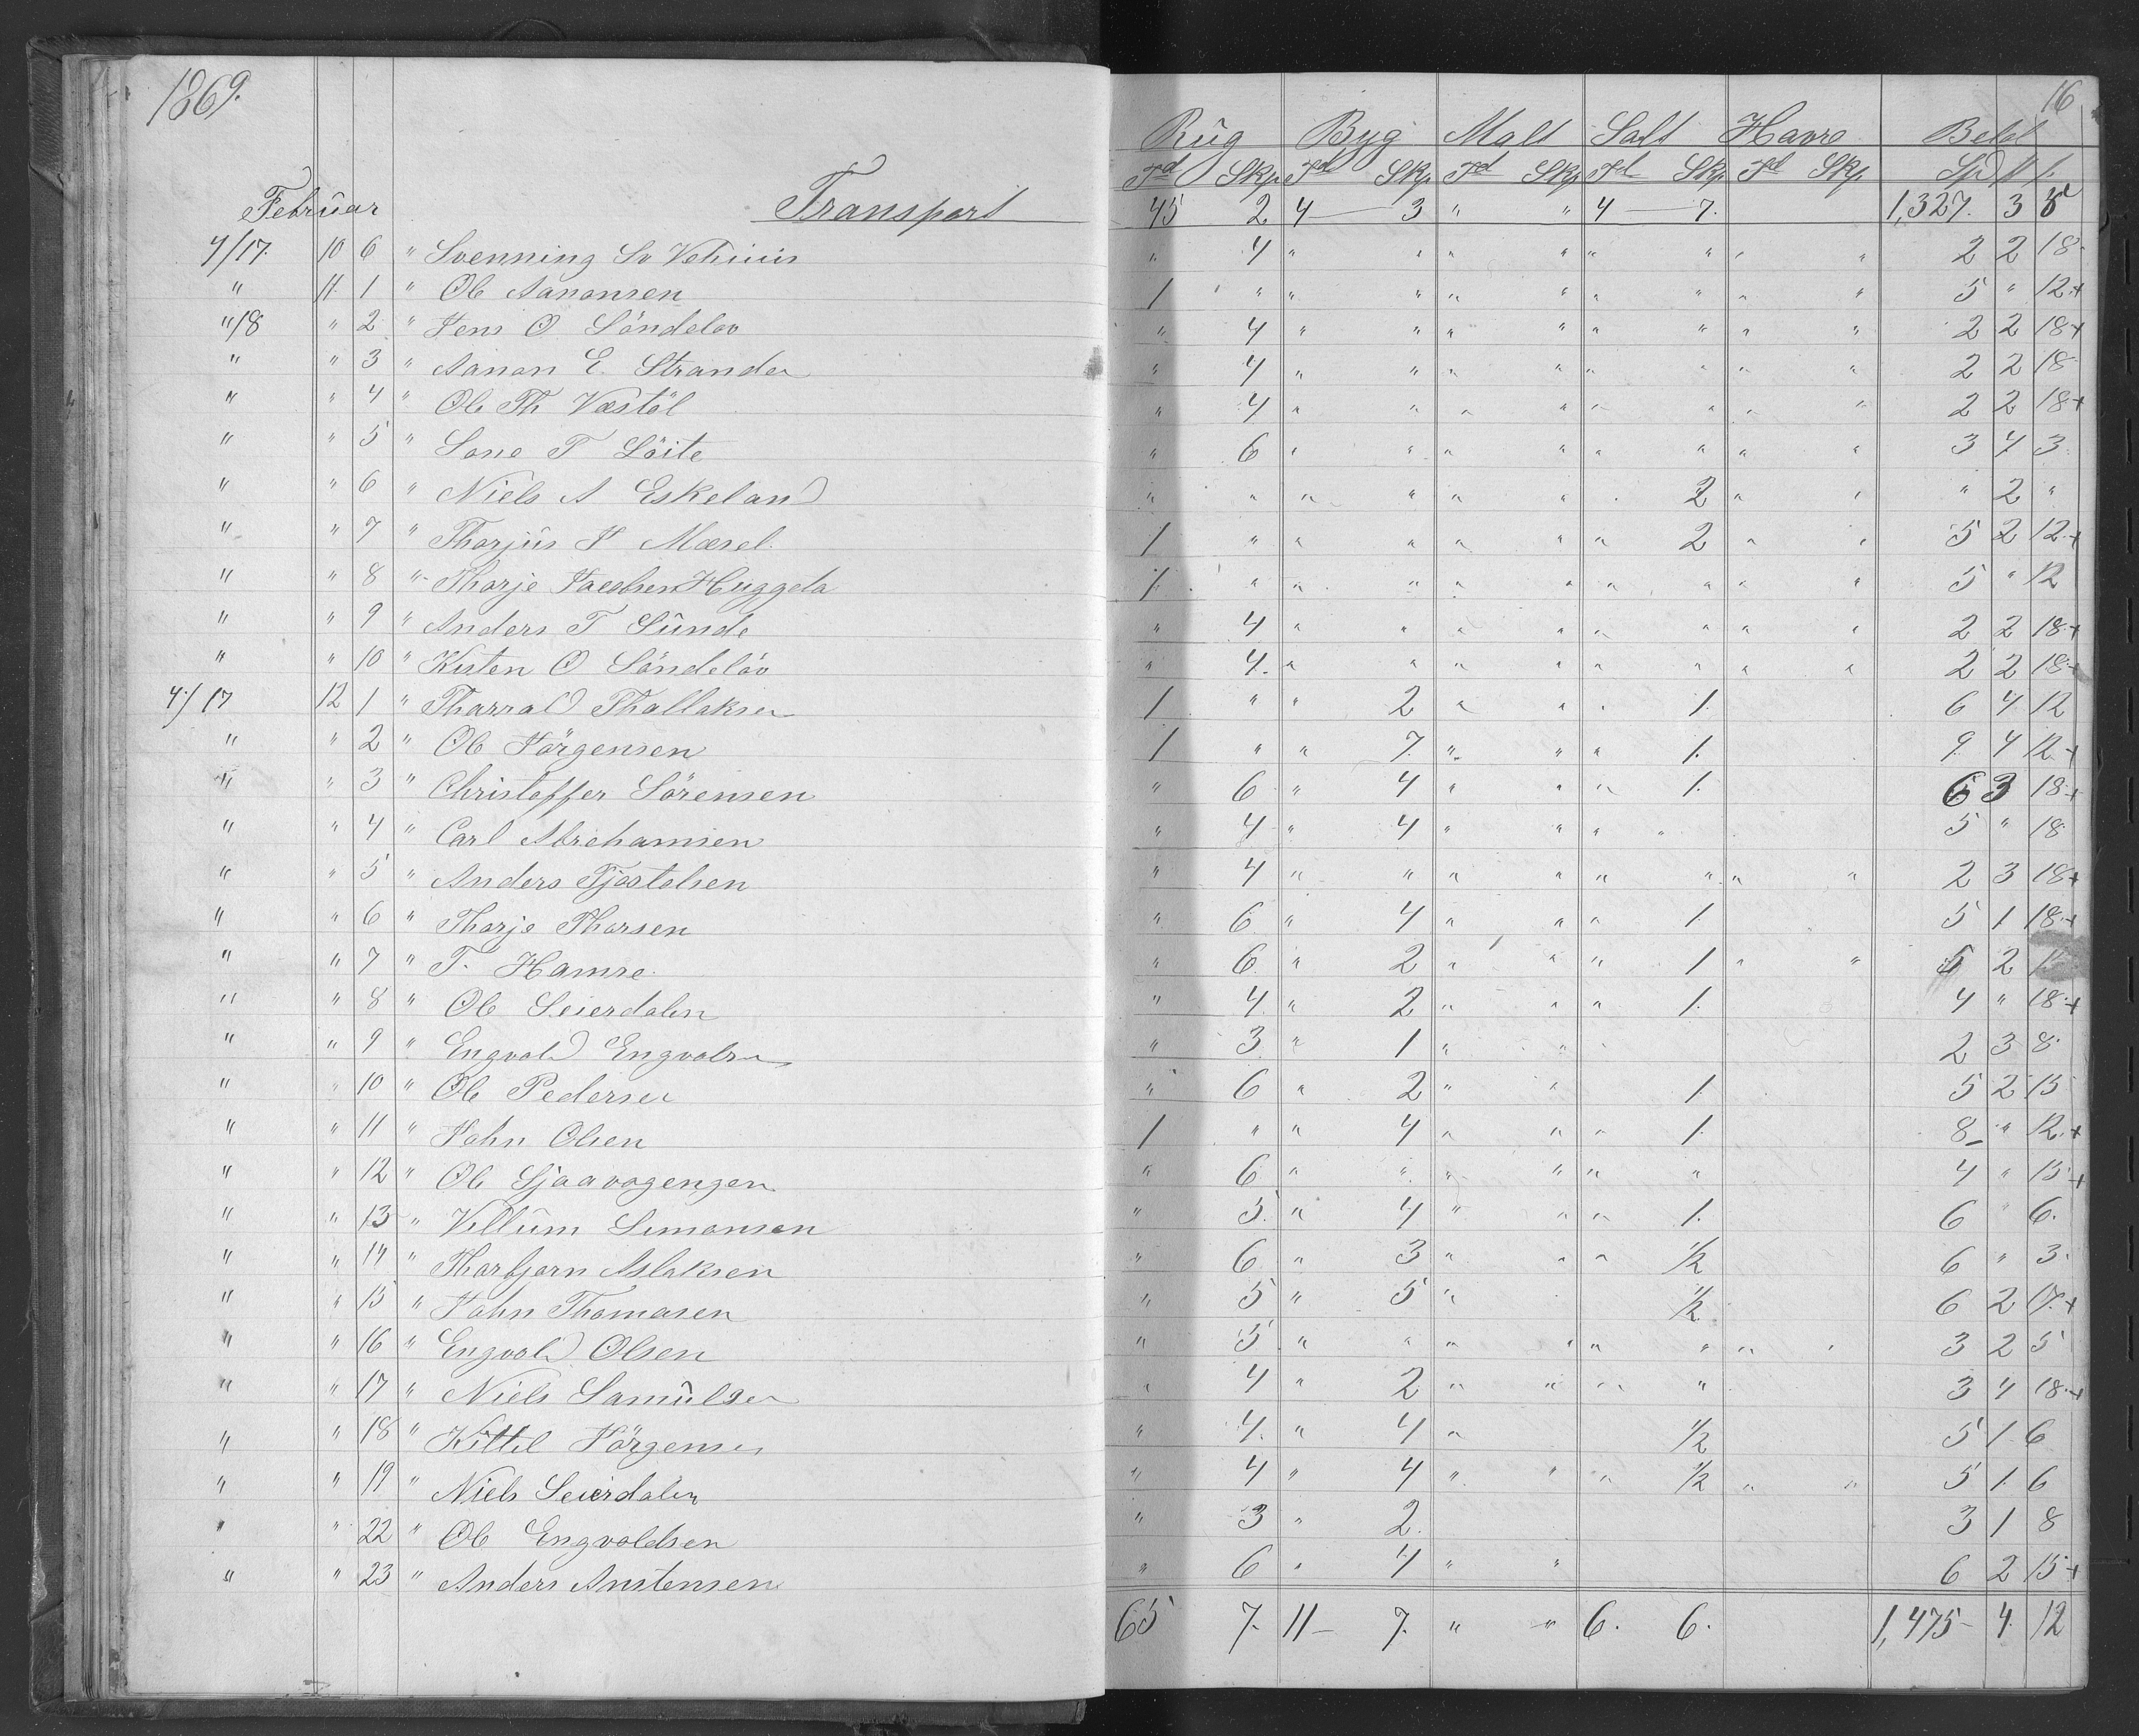 1869.
16
Rûg Byg Malt Salt Havre Beløb
Td Skp. Td Skp. Td Skp. Td Skp. Td Skp. Spd
Februar Transport 45 2 4 — 3 " " 4 — 7. 1,327. 3
4/17. 10 6 " Svenning Sv " 4 " " " " " " " " 2 2 18
" 11. 1 " Ole Aanonsen 1 " " " " " " " " " 5 " 12+
"/18 " 2 " Jens O Söndelöv " 4 " " " " " " " " 2 2 18+
" " 3 " Aanon E. Strander " 4 " " " " " " " " 2 2 18
" " 4 " Ole Th Væstöl " 4 " " " " " " " " 2 2 18+
" " 5 " T Löite " 6 " " " " " " " " 3 4 3
" " 6 " Niels A Eskeland " " " " " " . 2 " " " 2 "
" " 7 " Thorjûs J Mæsel. 1 " " " " " " 2 " " 5 2 12.+
" " 8 " Thorje Jacobsen Huggela 1. " " " " " " " " " 5 " 12
" " 9 " Anders T Sûnde " 4 " " " " " " " " 2 2 18+
" " 10 " Kisten O Söndelöv " 4. " " " " " " " " 2 2 18+
4/17 12 1 " Tharald Thallaksen 1 " " 2 " " . 1. 6 4 12
" " 2 " Ole Jörgensen 1 " " 7. " " " 1. 9. 4 12+
" " 3 " Christoffer Sörensen " 6 " 4 " " " 1. 6 3 18+
" " 4 " Carl Abrehamsen " 4 " 4 " " " " 5 " 18
" " 5 " Anders Tjøstolsen " 4 " " " " " " " " 2 3 18+
" " 6 " Thorje Thorsen " 6 " 4 " " " 1. 5 1 18.+
" " 7 " T. Hamre. " 6. " 2 " " " 1 " " 5 2
" " 8 " Ole Seierdalen " 4. " 2 " " " 1. 4 " 18+
" " 9 " Engvald Engvalsen " 3. " 1 " " . 2 3 8.
" " 10 " Ole Pedersen " 6 " 2 " " 1. 5 2 15
" " 11 " John Olsen 1 " " 4 " " " 1. 8 " 12.+
" " 12 " Ole Sjaavogengen " 6 " " " " " " 4 " 15+
" " 13 " Villûm Simonsen " 5. " 4 " " " 1. 6 " 6.
" " 14 " Thorbjørn Aslaksen " 6 " 3 " " " 1/2 6 " 3.
" " 15 " John Thomasen " 5 " 5 " 1/2 6 2 17.+
" " 16 " Engvald Olsen " 5 " " " " " " " " 3 2 5
" " 17 " Niels Samûlsen " 4 " 2 " " " " 3 4 18.+
" " 18 " Kittel Jörgensen " 4. " 4 " 1/2 5 1 6
" " 19 " Niels Seierdalen " 4 " 4 " " " 1/2 " " 5 1. 6
" " 22 " Ole Engvoldsen " 3 " 2. 3 1 8
" " 23 " Anders Anstensen " 6 " 4 " " 6 2 15+
65 7. 11 — 7. " " 6. 6. 1,475 — 4. 12